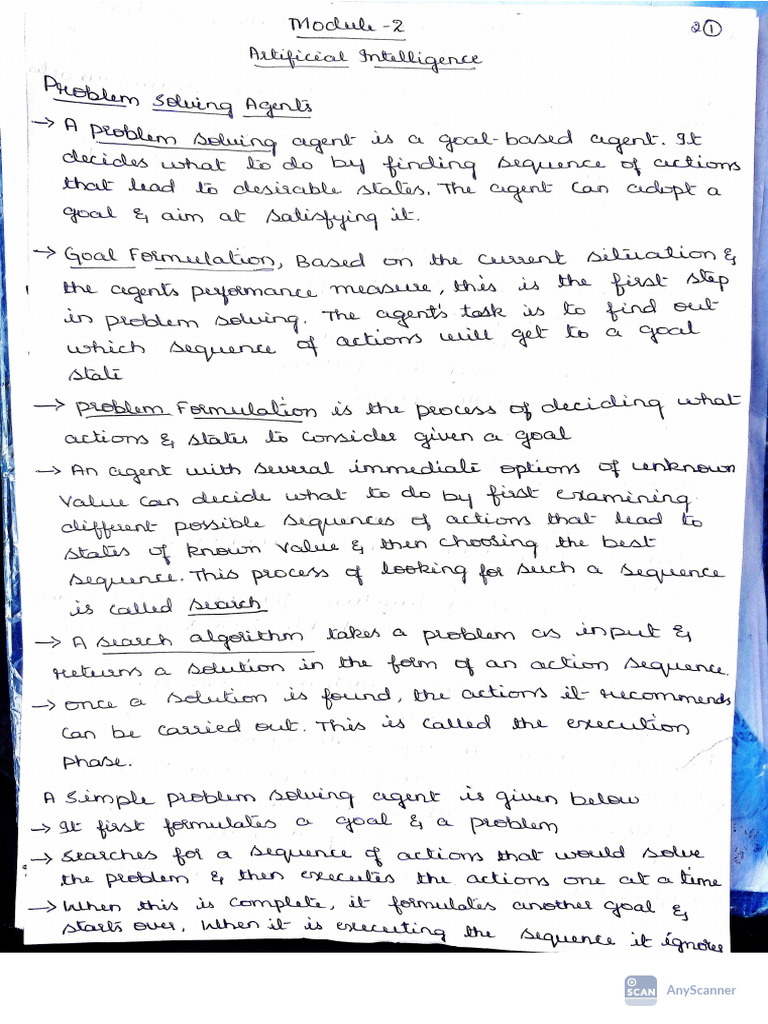 Module -2
2①
Artificial Intelligence
Problem Solving Agents
→ A problem solving agent is a goal-based agent. It
decides what to do by finding sequence of actions
that lead to desirable states. The agent can adopt a
goal & aim at satisfying it.
→ Goal Formulation, Based on the current situation &
the agents performance measure, this is the first step
in problem solving. The agent's task is to find out
which sequence of actions will get to a goal
state
→ problem Formulation is the process of deciding what
actions & states to consider given a goal
→ An agent with several immediate options of unknown
value can decide what to do by first examining
different possible sequences of actions that lead to
states of known value & then choosing the best
sequence. This process of looking for such a sequence
is called search
→ A search algorithm takes a problem as input &
returns a solution in the form of an action sequence.
→ once a solution is found, the actions it recommends
can be carried out. This is called the execution
phase.
A simple problem solving agent is given below
→ It first formulates a goal & a problem
→ searches for a sequence of actions that would solve
the problem & then executes the actions one at a time
→ When this is complete, it formulates another goal &
starts over. When it is executing the sequence it ignores
SCAN AnyScanner